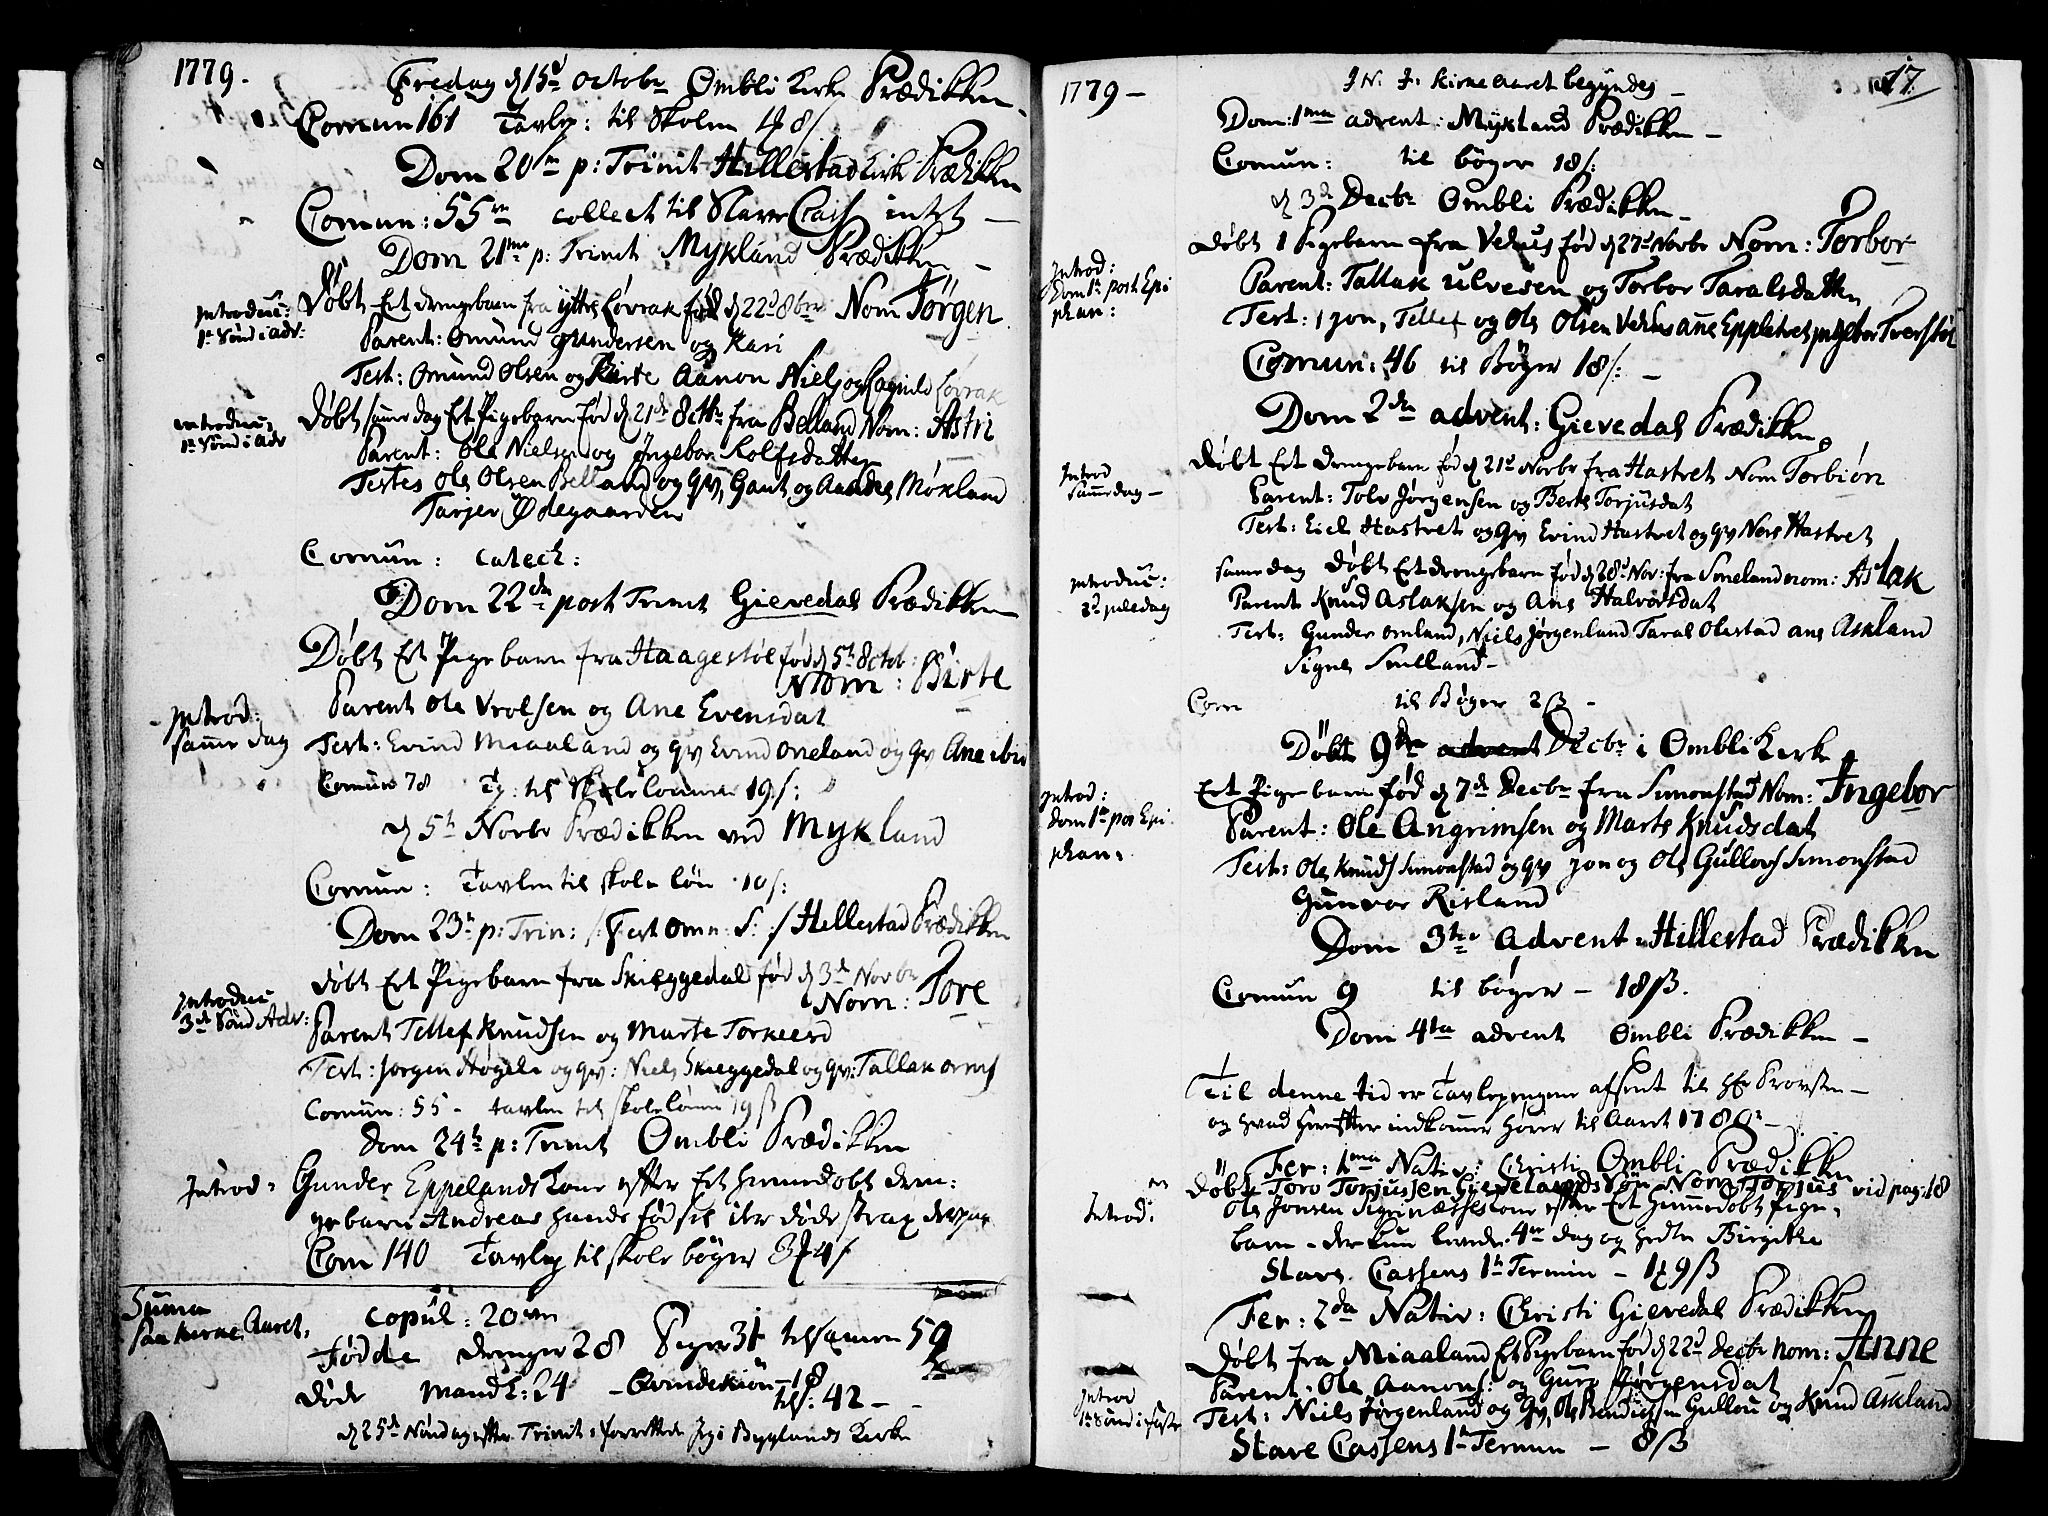 1779.
Fredag d 15d octobr Ombli Kirke Prædikken
Comun 161 Tavlep: til Skolen
Dom 20m p: Trinit Hillestad Kirke Prædikken
Comun: 55 collect til Slave Cass intet
Dom 21ma p: Trinit Mykland Prædikken
Introduc:
1n Sønd i Adv:
Døbt Et drengebarn fra yttre Løvrak fød d 22d 8br Nom Jørgen
Parent: Omund Gundersen og Kari
Test: Omund Olsen og Aanon Niels og Løvrak
introduc:
1n Sønd i Adv
Døbt samme dag Et Pigebarn fød d 21d 8tbr fra Belland Nom: Astri
Parent: Ole Nielsen og Ingebor Rolfsdatter
Testes Ole Olsen Belland og qv, Gaut og Møkland
Tarjer Ødegaarden
Comun: catech:
Dom 22da post Trinit Gievedal Prædikken
Døbt Et Pigebarn fra Haagestøl fød d 5t octob:
Nom: Birte
Introd:
samme dag
Parent Ole Vrolsen og Ane Evensdat
Test: Evind Miaaland og qv Evind Oneland og qv Ane ibid
Comun 78 Tp: til Skolelønnen 19 s:
d 5t Novbr Prædikken ved Mykland
Comun: Tavlen til skole løn 10 s:
Dom 23n p: Trin: /: Fest Omn: S: :/ Hellestad Prædikken
Døbt Et Pigebarn fra Skieggedal fød d 3d Novbr
Nom: Tore
Introduc
3d Sønd Adv:
Parent Tellef Knudsen og Marte Torkeersd
Test: Jørgen Høgeli og qv: Niels Skieggedal og qv: Tallak
Comun: 55 - tavlen til skolelønn 19 ß
Dom 24t p: Trinit Ombli Prædikken
Introd: Gunder Eppelands Kone efter Et hiemedøbt dren:
gebarn Andreas hendes fødsel
Com 140 Tavlep til skole bøger
Suma
paa Kirke Aaret.
Copul: 20
Fødde drenger 28 Piger 31 tilsamen 59
Døde Mandk: 24 - Qvindekiøn - 18
tils: 42 -
d 25d Søndag efter Trinit: forrettede Jeg i Byglands Kirke
17.
1779 -
J. N. J: Kirke Aaret begyndes -
Dom: 1ma advent: Mykland Prædikken -
Comun: til bøger 18 s:
d 3d Decbr Ombli Prædikken -
Introd:
Dom 1n post Epi
phan:
Døbt 1 Pigebarn fra Vehus fød d 27d Novbr Nom: Torbor
Parent: Tallak Ulvesen og Torbor Taralsdatter
Test: Jon, Tellef og Ole Olsen Vehus
Comun: 46 til Bøger 18 s: -
Dom 2da advent: Gievedal Prædikken
Introd
samme dag -
Døbt Et drengebarn fød d 21d Novbr fra Hastvet Nom Torbiøn
Parent: Tolv Jørgensen og Berte Torjusdat
Test: Hastvet og Qv Evind Hastvet og qv Hastvet
Introduc:
2d juledag
samme dag Døbt Et drengebarn fød d 28d Nov: fra Smeland nom: Aslak
Parent Knud Aslaksen og Ane Halvorsdat
Test: Gunder Omland, Niels Jørgenland Taral Olestad ane Askland
Signe Smelland -
Com til Bøger 2 ß -
Døbt 9de Decbr i Ombli Kirke
Introd:
Dom 1n pos Epi
phan:
Et Pigebarn fød d 7d Decbr fra Simonstad Nom: Ingebor
Parent: Ole Angrimsen og Marte Knudsdat
Test: Ole Knuds Simonstad og qv Jon og Ole Simonstad
Gunvor Risland
Dom 3tia Advent Hillestad Prædikken
Comun 9 til bøger - 18 ß.
Dom 4ta advent Ombli Prædikken -
Til denne tid er Tavlepengene afsent til Hr Provsten -
og hvad hereffter indkommer hører til Aaret 1780: -
Fer: 1ma Nativ: Christi Ombli Prædikken
Døbt Toro Torjussen Nom Torjus vid pag: 18
Introd:
Ole Jonsen kone efter Et hiemedøbt Pige-
barn - der kun levede 4re dag og hedte Birgitte
Slave Cassens 1n Termin -
Fer: 2da Nativ: Christi Gievedal Prædikken
Døbt fra Miaaland Et Pigebarn fød d 22d Decbr nom: Anne
Parent: Ole Aanons: og Guro Jørgensdat
Introd
Test: Niels Jørgenland og Qv, Ole og Knud Askland
Slave Cassens 1n Termin - 8 ß